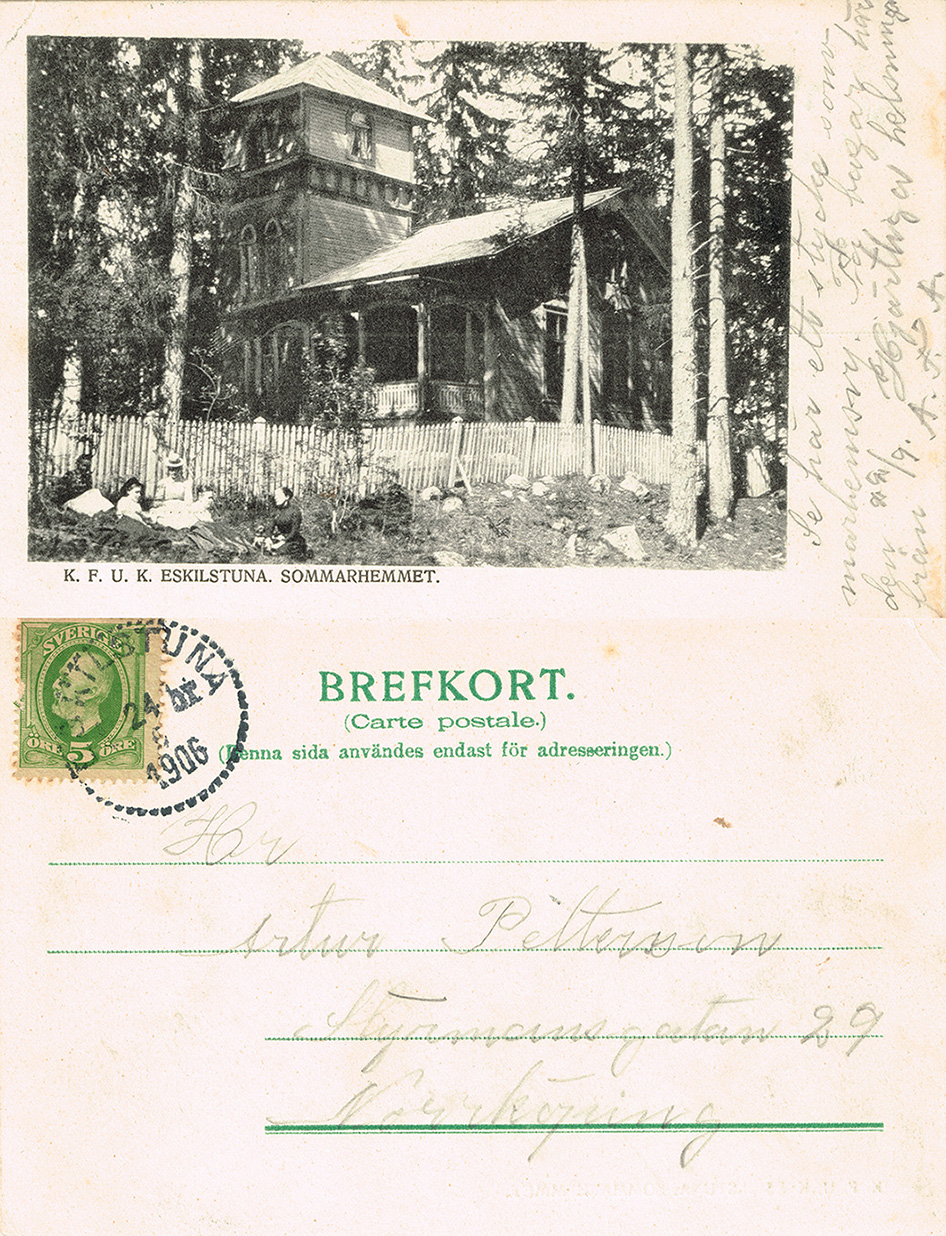 Se här ett stycke som-
marhemsvy. Jag här
den 22/9. Hjärtliga helsningar
från A. F. A.
K. F. U. K. ESKILSTUNA. SOMMARHEMMET.
SVERIGE
ÖRE 5 ÖRE
ESKILSTUNA
24
1906
BREFKORT.
(Carte postale.)
(Denna sida användes endast för adresseringen.)
Hr
Artur Petterson
Styrmansgatan 29
Norrköping